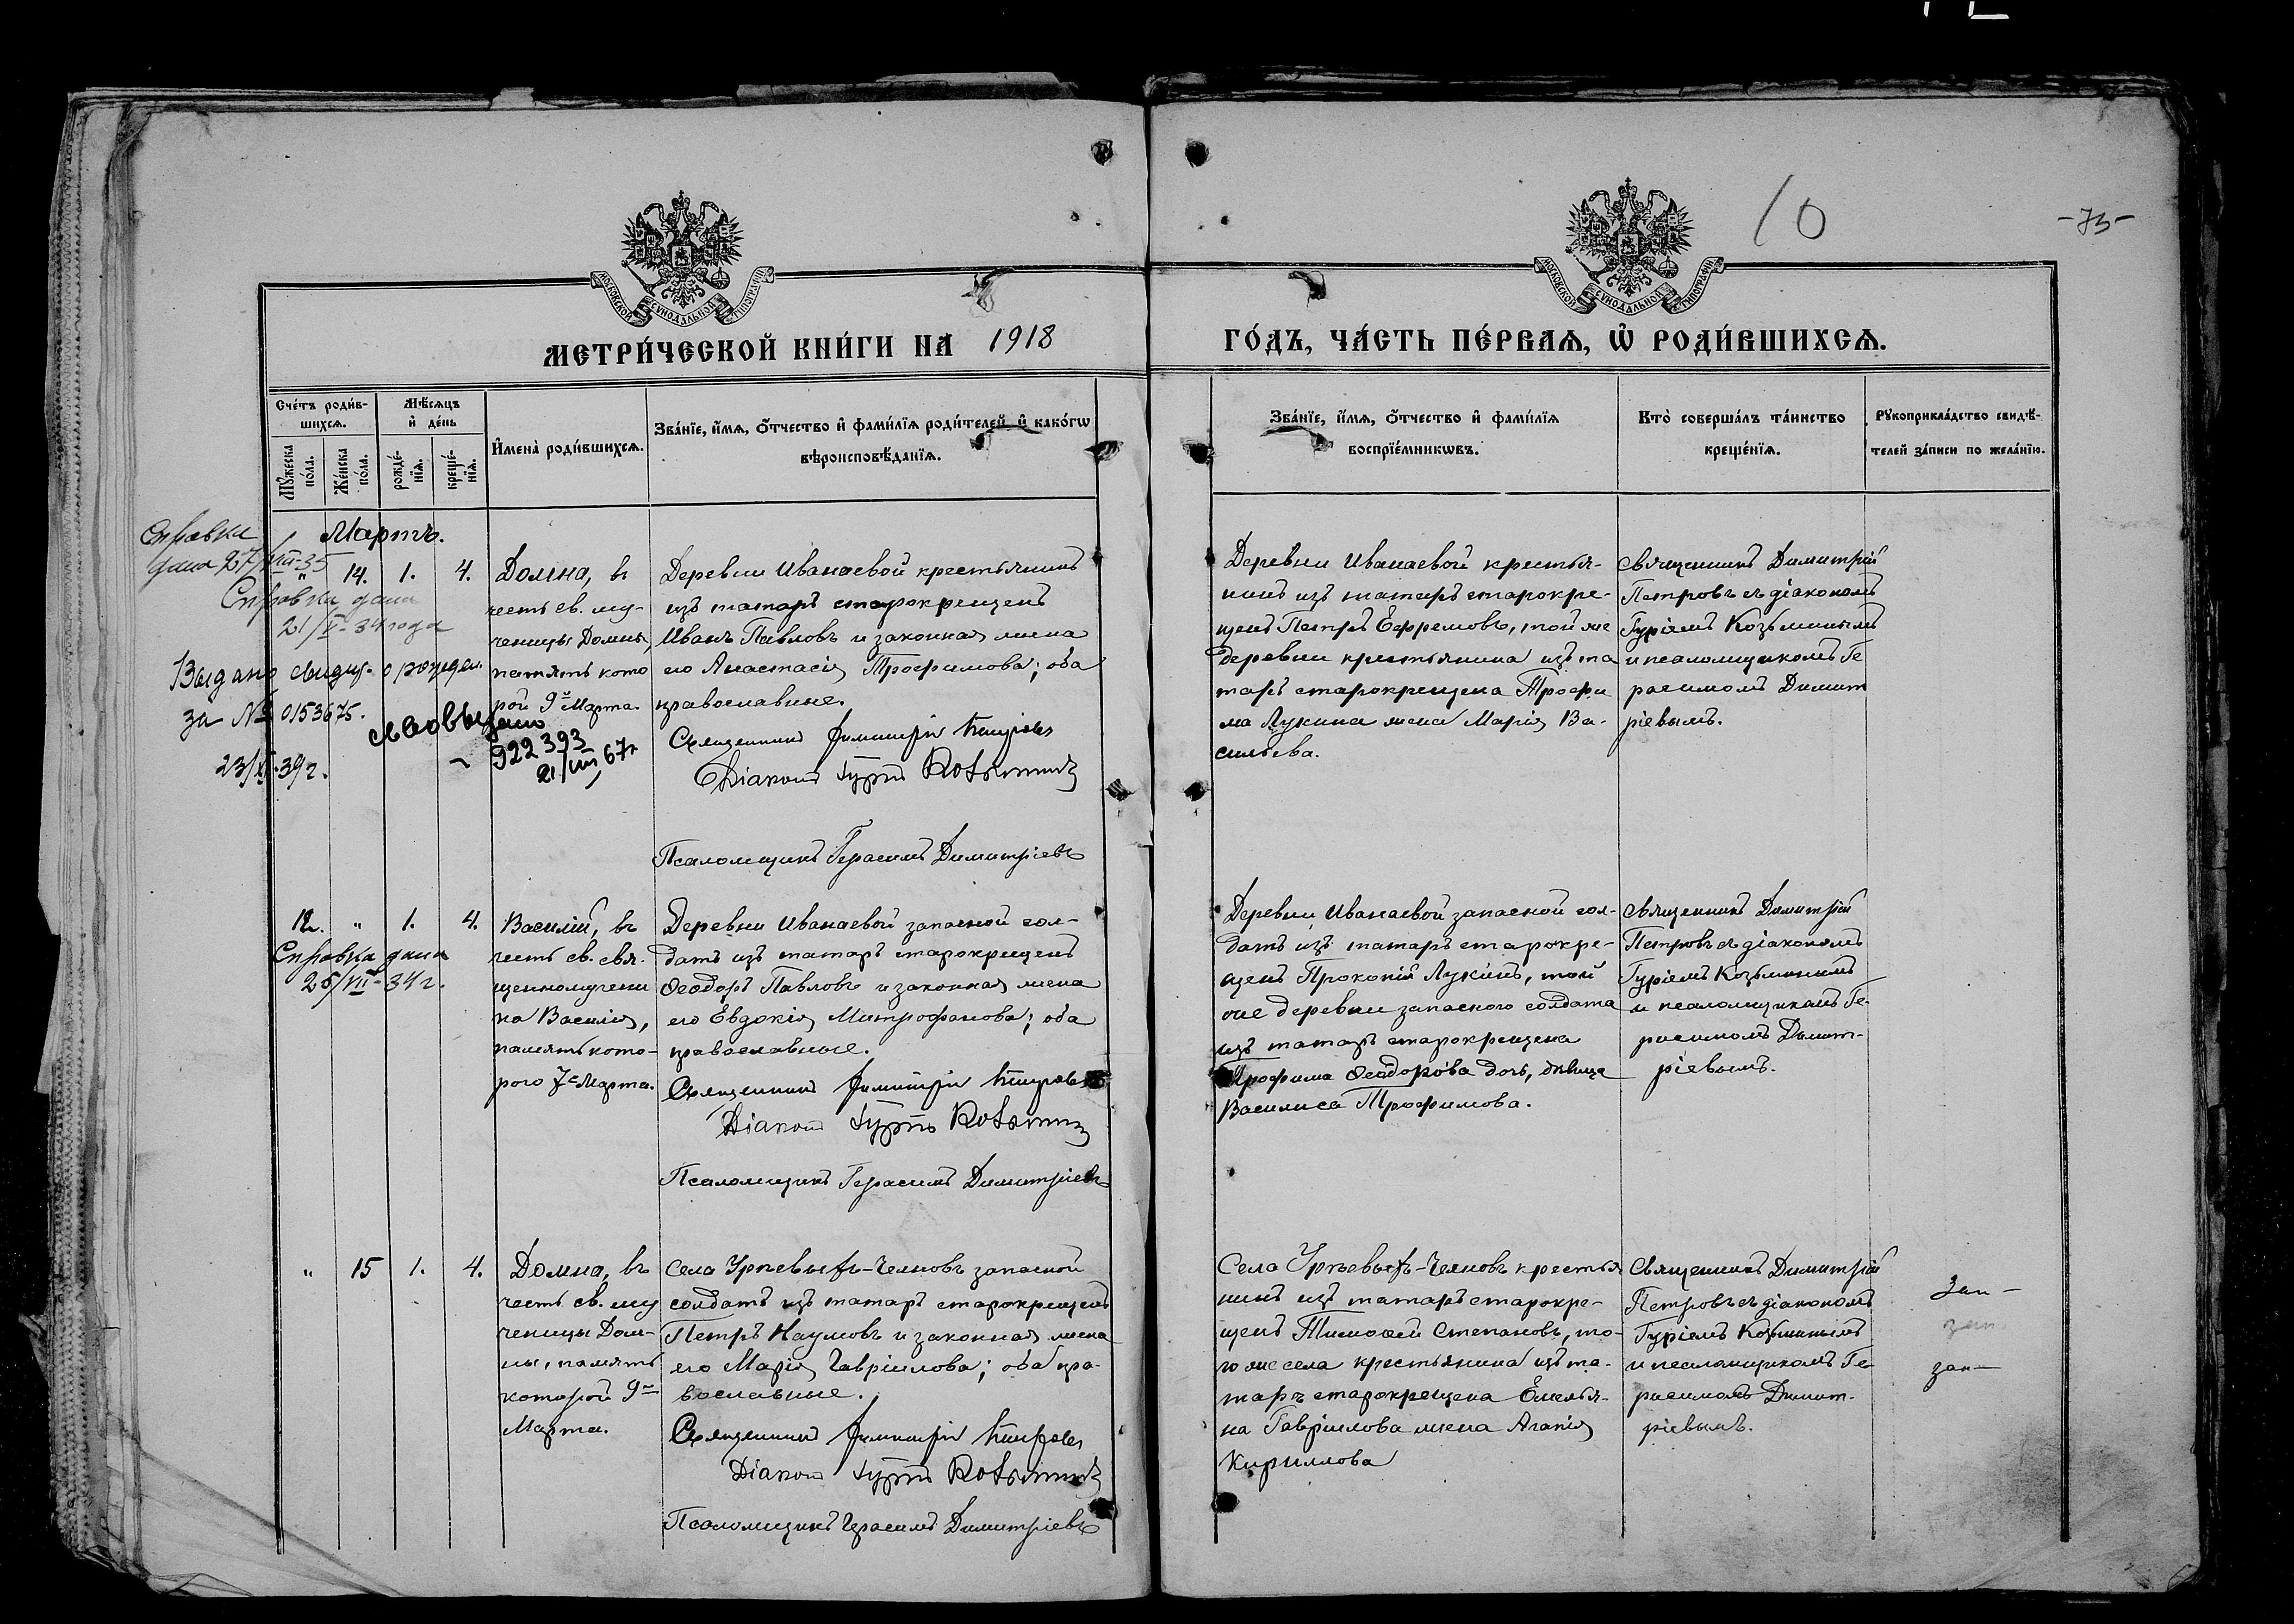 10
-73-
МОСКОВСКОЙ СѴНОДАЛЬНОЙ ТИПОГРАФІИ
МОСКОВСКОЙ СѴНОДАЛЬНОЙ ТИПОГРАФІИ
МЕТРИ́ЧЕСКОЙ КНИ́ГИ НА 1918
ГО́ДЪ, ЧА́СТЬ ПЕ́РВАѦ, Ѡ҆ РОДИ́ВШИХСѦ.
Сче́тъ роди́в-
шихсѧ.
Мѣ́сѧцъ
и҆ де́нь
Мꙋ́жеска
по́ла.
Же́нска
по́ла.
рожде́-
нїѧ.
креще́-
нїѧ.
И҆мена̀ роди́вшихсѧ.
Зва́нїе, и҆́мѧ, ѻ҆́тчество и҆ фами́лїѧ роди́телей, и҆ како́гѡ
вѣроисповѣ́данїѧ.
Зва́нїе, и҆́мѧ, ѻ҆́тчество и҆ фами́лїѧ
воспрїе́мникѡвъ.
Кто̀ соверша́лъ та́инство
креще́нїѧ.
Рꙋкоприкла́дство свидѣ́-
телей за́писи по жела́нїю.
Мартъ.
Справка
дана 27/VIII-35
Справка дана
21/V-34 года
Выдано свидет. о рожден.
за № 0153675.
23/XI-39г.
" 14. 1. 4.
Домна, въ
честь св. му-
ченицы Домны,
память кото
рой 9го Марта.
св-во выдано
922393
21/VIII 67г
Деревни Иванаевой крестьянинъ
изъ татаръ старокрещенъ
Иванъ Павловъ и законная жена
его Анастасія Трофимова; оба
православные.
Священникъ Димитрій Петровъ
Діаконъ Гурій Козьминъ
Псаломщикъ Герасимъ Димитріевъ
Деревни Иванаевой крестья-
нинъ изъ татаръ старокре-
щенъ Петръ Ефремовъ, той же
деревни крестьянина изъ та
таръ старокрещена Трофи
ма Лукина жена Марія Ва-
сильева.
Священникъ Димитрій
Петровъ съ діакономъ
Гуріемъ Козьминымъ
и псаломщикомъ Ге
расимомъ Димит
ріевымъ.
12. " 1. 4.
Справка дана
25/VIII-34г.
Василій, въ
честь св. свя-
щенномучени
ка Василія,
память кото-
рого 7го Марта.
Деревни Иванаевой запасной сол-
датъ изъ татаръ старокрещенъ
Ѳеодоръ Павловъ и законная жена
его Евдокія Митрофанова; оба
православные.
Священникъ Димитрій Петровъ
Діаконъ Гурій Козьминъ
Псаломщикъ Герасимъ Димитріевъ
Деревни Иванаевой запасной сол-
датъ изъ татаръ старокре-
щенъ Прокопій Лукинъ, той
же деревни запасного солдата
изъ татаръ старокрещена
Трофима Ѳеодорова дочь, дѣвица
Василиса Трофимова.
Священникъ Димитрій
Петровъ съ діакономъ
Гуріемъ Козьминымъ
и псаломщикомъ Ге-
расимомъ Димит-
ріевымъ.
" 15 1. 4.
Домна, въ
честь св. му
ченицы Дом-
ны, память
которой 9го
Марта.
Села Урѣевыхъ-Челновъ запасной
солдатъ изъ татаръ старокрещенъ
Петръ Наумовъ и законная жена
его Марія Гавріилова; оба пра-
вославные.
Священникъ Димитрій Петровъ
Діаконъ Гурій Козьминъ
Псаломщикъ Герасимъ Димитріевъ
Села Урѣевыхъ-Челновъ крестья
нинъ изъ татаръ старокре-
щенъ Тимоѳей Степановъ, то-
го же села крестьянина изъ та-
таръ старокрещена Емелья-
на Гавріилова жена Агапія
Кириллова
Священникъ Димитрій
Петровъ съ діакономъ
Гуріемъ Козьминымъ
и псаломщикомъ Ге
расимомъ Димит-
ріевымъ.
Зап-
зап
зап-